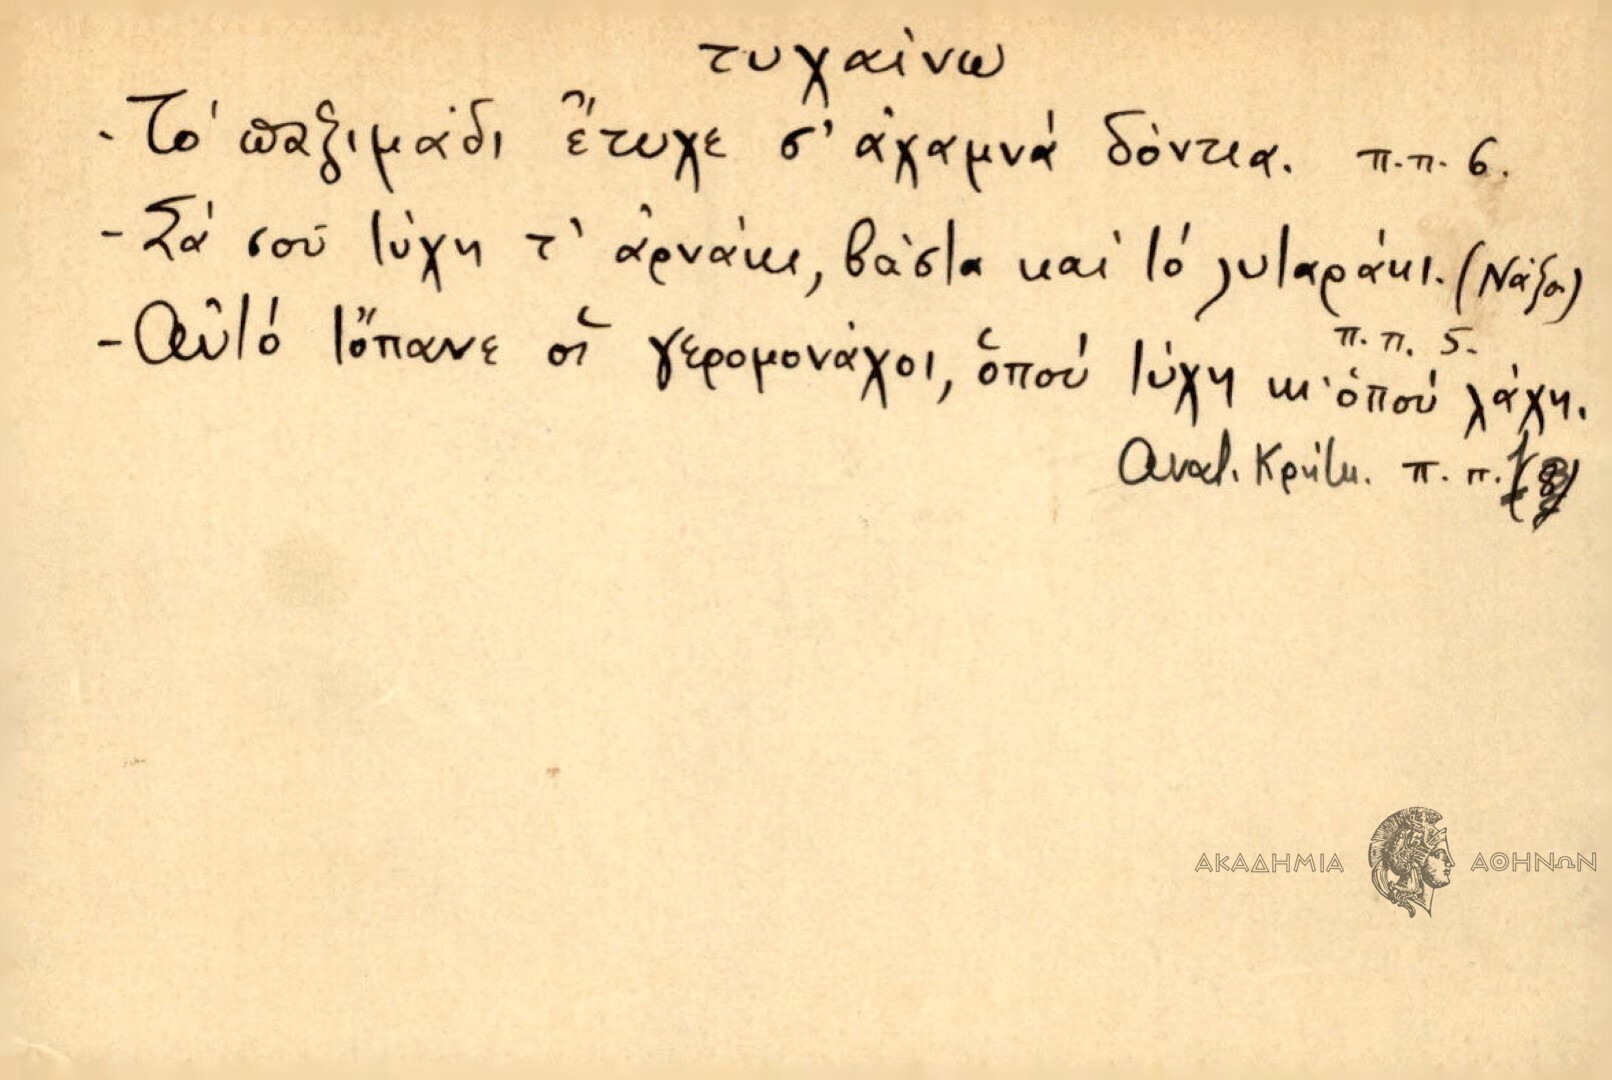 τυχαίνω
- Τό παξιμάδι ἔτυχε σ' ἀχαμνά δόντια. π.π. 6.
- Σά σοῦ τύχη τ' ἀρνάκι, βάστα καί τό λυταράκι. (Νάξο)
π. π. 5.
- Αὐτό τὄπανε οἱ γερομονάχοι, ὅπού τύχη κι' ὁπού λάχη.
Ανατ. Κρήτη. π. π.
ΑΚΑΔΗΜΙΑ ΑΘΗΝΩΝ